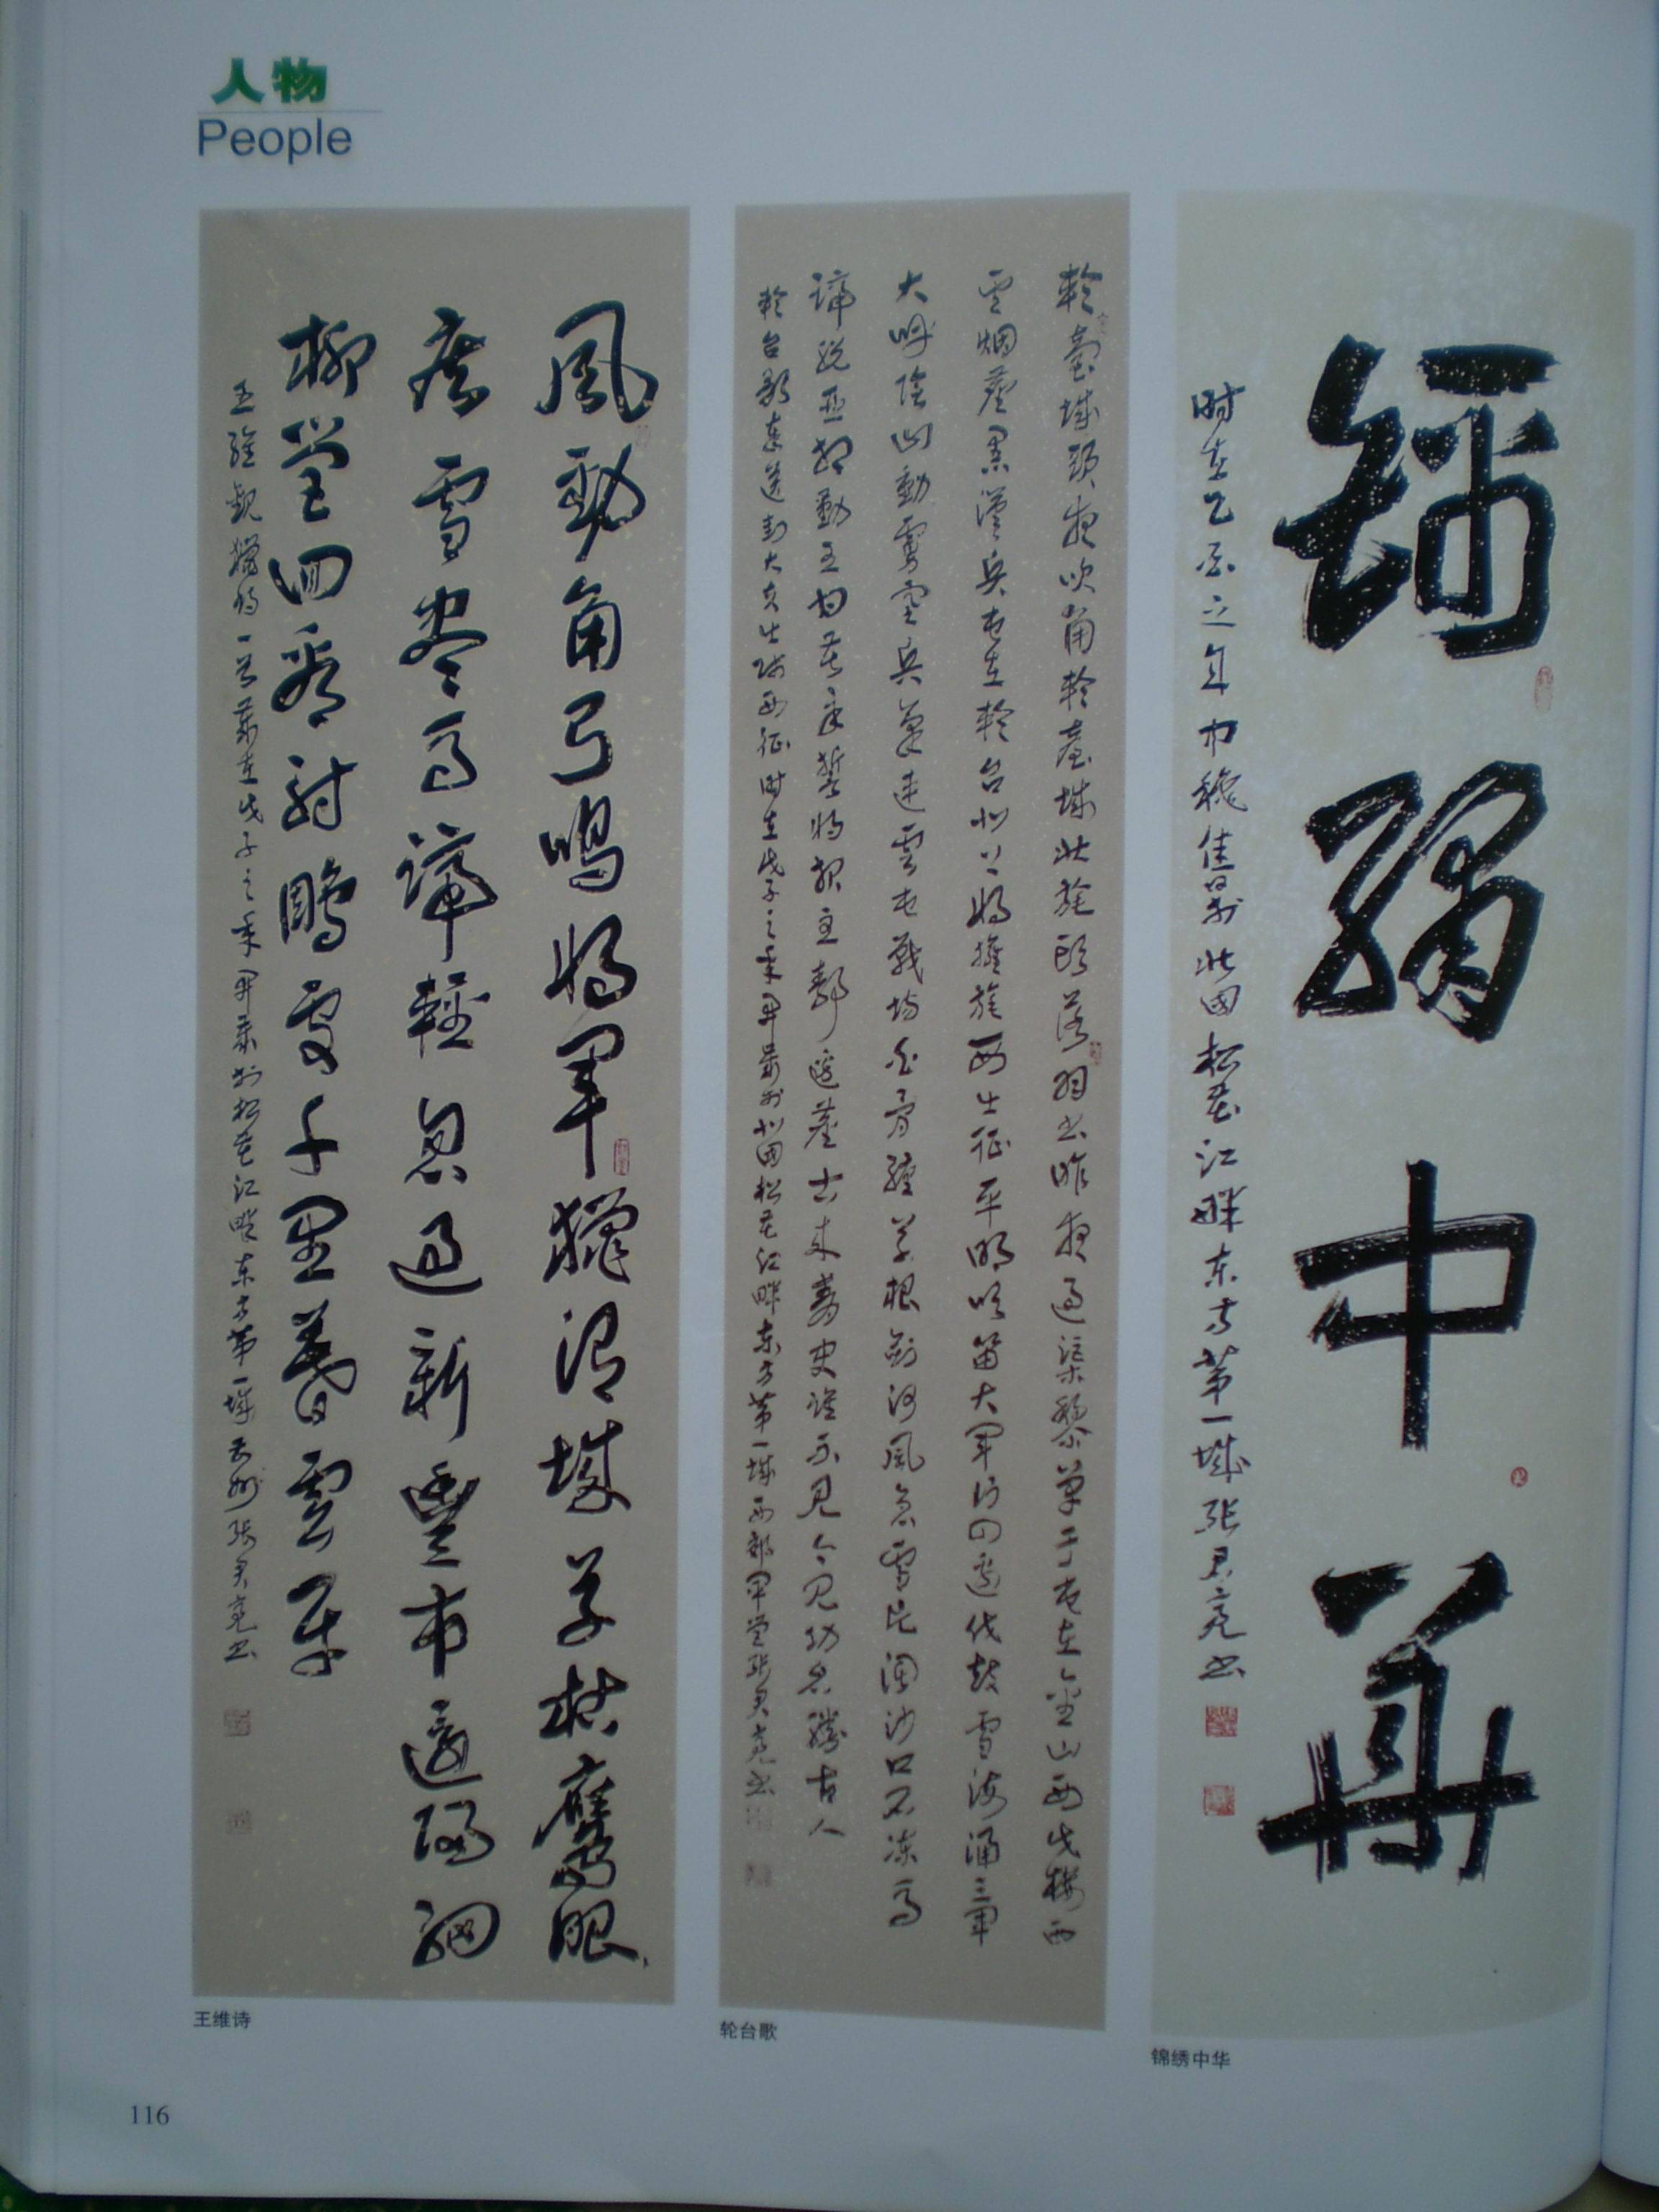 人物
People
風勁角弓鳴將軍獵渭城草枯鷹眼
疾雪盡馬蹄輕忽過新豐市還歸細
柳營回看射鵰處千里暮雲平
王維觀獵詩一首歲在戊子之季於松花江畔东方第一城张君亮书
王维诗
輪臺城頭夜吹角輪臺城北旄頭落羽书昨夜過渠黎單于屯在金山西戍樓西
望烟塵黑漢兵屯在輪台北上將擁旄西出征平明吹笛大軍行四邊伐鼓雪海涌三軍
大呼陰山動虜塞兵氣連雲屯戰場白骨纏草根劍河風急雪片闊沙口石凍馬
蹄脫亞相勤王甘苦辛誓將報主靜邊塵古来青史誰不見今見功名勝古人
輪台歌奉送封大夫出師西征时在戊子之季於北国松花江畔东方第一城西郊张君亮书
轮台歌
錦繡中華
时在乙酉之年佳日於北国松花江畔东方第一城张君亮书
锦绣中华
116